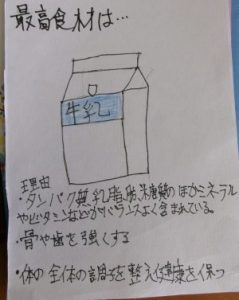 最高食材は…
牛乳
理由
・タンパク質、乳脂肪、炭水化物のほかミネラル
やビタミンなどがバランスよく含まれている。
・骨や歯を強くする
・体の全体の調子を整え健康を保つ